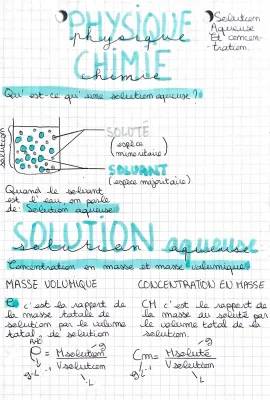 PHYSIQUE
physique
CHIMIE
chimie
Solution
Aqueuse
Et concen-
tration.
Qu'est-ce qu'une solution aqueuse ?
solution
SOLUTÉ
(espèce
minoritaire)
SOLVANT
(espèce majoritaire)
Quand le solvant
est l'eau, on parle
de: Solution aqueuse
SOLUTION aqueuse
solution aqueuse
Concentration en masse et masse volumique
MASSE VOLUMIQUE
ρ c'est le rapport de
la masse totale de
solution par le volume
total, de solution
Rhô
ρ = Msolution g
Vsolution
g.L⁻¹ L
CONCENTRATION EN MASSE
CM c'est le rapport de
la masse du soluté par
le volume total de la
solution.
Cm = Msoluté g
Vsolution
g.L⁻¹ L